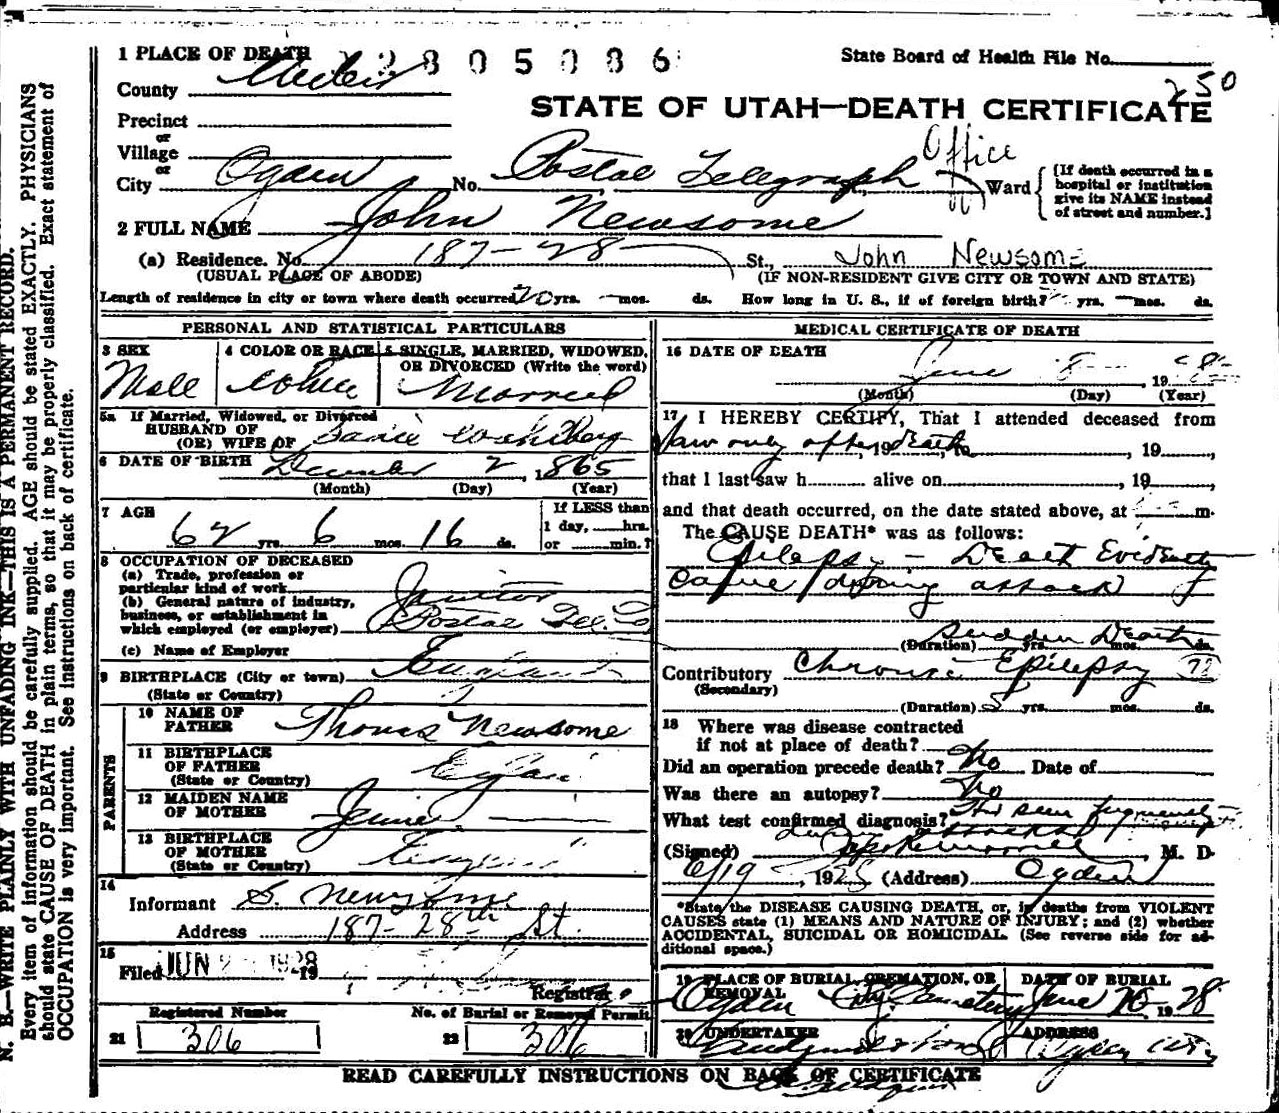 1 PLACE OF DEATH 2805086
State Board of Health File No.
250
County Weber
STATE OF UTAH—DEATH CERTIFICATE
Precinct
or
Village
or
City Ogden No. Postal Telegraph Office Ward
[If death occurred in a hospital or institution give its NAME instead of street and number.]
2 FULL NAME John Newsome
(a) Residence. No. 187-28 St., John Newsome
(USUAL PLACE OF ABODE) (IF NON-RESIDENT GIVE CITY OR TOWN AND STATE)
Length of residence in city or town where death occurred yrs. mos. ds. How long in U. S., if of foreign birth? yrs. mos. ds.
PERSONAL AND STATISTICAL PARTICULARS
3 SEX Male
4 COLOR OR RACE White
5 SINGLE, MARRIED, WIDOWED, OR DIVORCED (Write the word) Married
5a If Married, Widowed, or Divorced
HUSBAND OF
(OR) WIFE OF
6 DATE OF BIRTH December 2, 1865
(Month) (Day) (Year)
7 AGE 62 yrs. 6 mos. 16 ds.
If LESS than
1 day, hrs.
or min.?
8 OCCUPATION OF DECEASED
(a) Trade, profession or
particular kind of work Janitor
(b) General nature of industry,
business, or establishment in
which employed (or employer) Postal Tel. Co
(c) Name of Employer
9 BIRTHPLACE (City or town) England
(State or Country)
PARENTS
10 NAME OF
FATHER Thomas Newsome
11 BIRTHPLACE
OF FATHER
(State or Country)
12 MAIDEN NAME
OF MOTHER
13 BIRTHPLACE
OF MOTHER
(State or Country)
14
Informant S. Newsome
Address 187-28th St.
15
Filed JUN 1928
Registrar.
Registered Number
21 306
No. of Burial or Removal Permit
22 306
MEDICAL CERTIFICATE OF DEATH
16 DATE OF DEATH June
, 19
(Month) (Day) (Year)
17 I HEREBY CERTIFY, That I attended deceased from
Saw only after death, 19
that I last saw h alive on , 19 ,
and that death occurred, on the date stated above, at m.
The CAUSE DEATH* was as follows:
Epilepsy - Death Evidently
came during attack
Sudden Death
(Duration) yrs. mos. ds.
Contributory Chronic Epilepsy
(Secondary)
(Duration) 5 yrs. mos. ds.
18 Where was disease contracted
if not at place of death?
Did an operation precede death? No Date of
Was there an autopsy? No
What test confirmed diagnosis?
(Signed) M. D.
6/19, 1928 (Address) Ogden
*State the DISEASE CAUSING DEATH, or, in deaths from VIOLENT
CAUSES state (1) MEANS AND NATURE OF INJURY; and (2) whether
ACCIDENTAL, SUICIDAL OR HOMICIDAL. (See reverse side for additional space.)
19 PLACE OF BURIAL, CREMATION, OR
REMOVAL Ogden City Cemetery
DATE OF BURIAL
June 20 1928
20 UNDERTAKER
ADDRESS
Ogden
READ CAREFULLY INSTRUCTIONS ON BACK OF CERTIFICATE
N. B.—WRITE PLAINLY WITH UNFADING INK—THIS IS A PERMANENT RECORD.
Every item of information should be carefully supplied. AGE should be stated EXACTLY. PHYSICIANS
should state CAUSE OF DEATH in plain terms, so that it may be properly classified. Exact statement of
OCCUPATION is very important. See instructions on back of certificate.